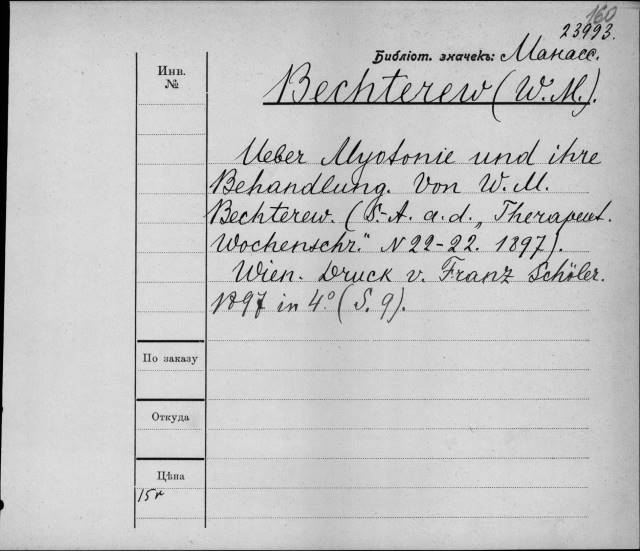 160
23993.
Библіот. значекъ: Манасс.
Инв.
№
Bechterew (W. M.).
Ueber Myotonie und ihre
Behandlung. Von W. M.
Bechterew. (S.-A. a. d. „Therapeut.
Wochenschr." N 22-22. 1897).
Wien. Druck v. Franz Schöler.
1897 in 4.° (S. 9).
По заказу
Откуда
Цѣна
15 к